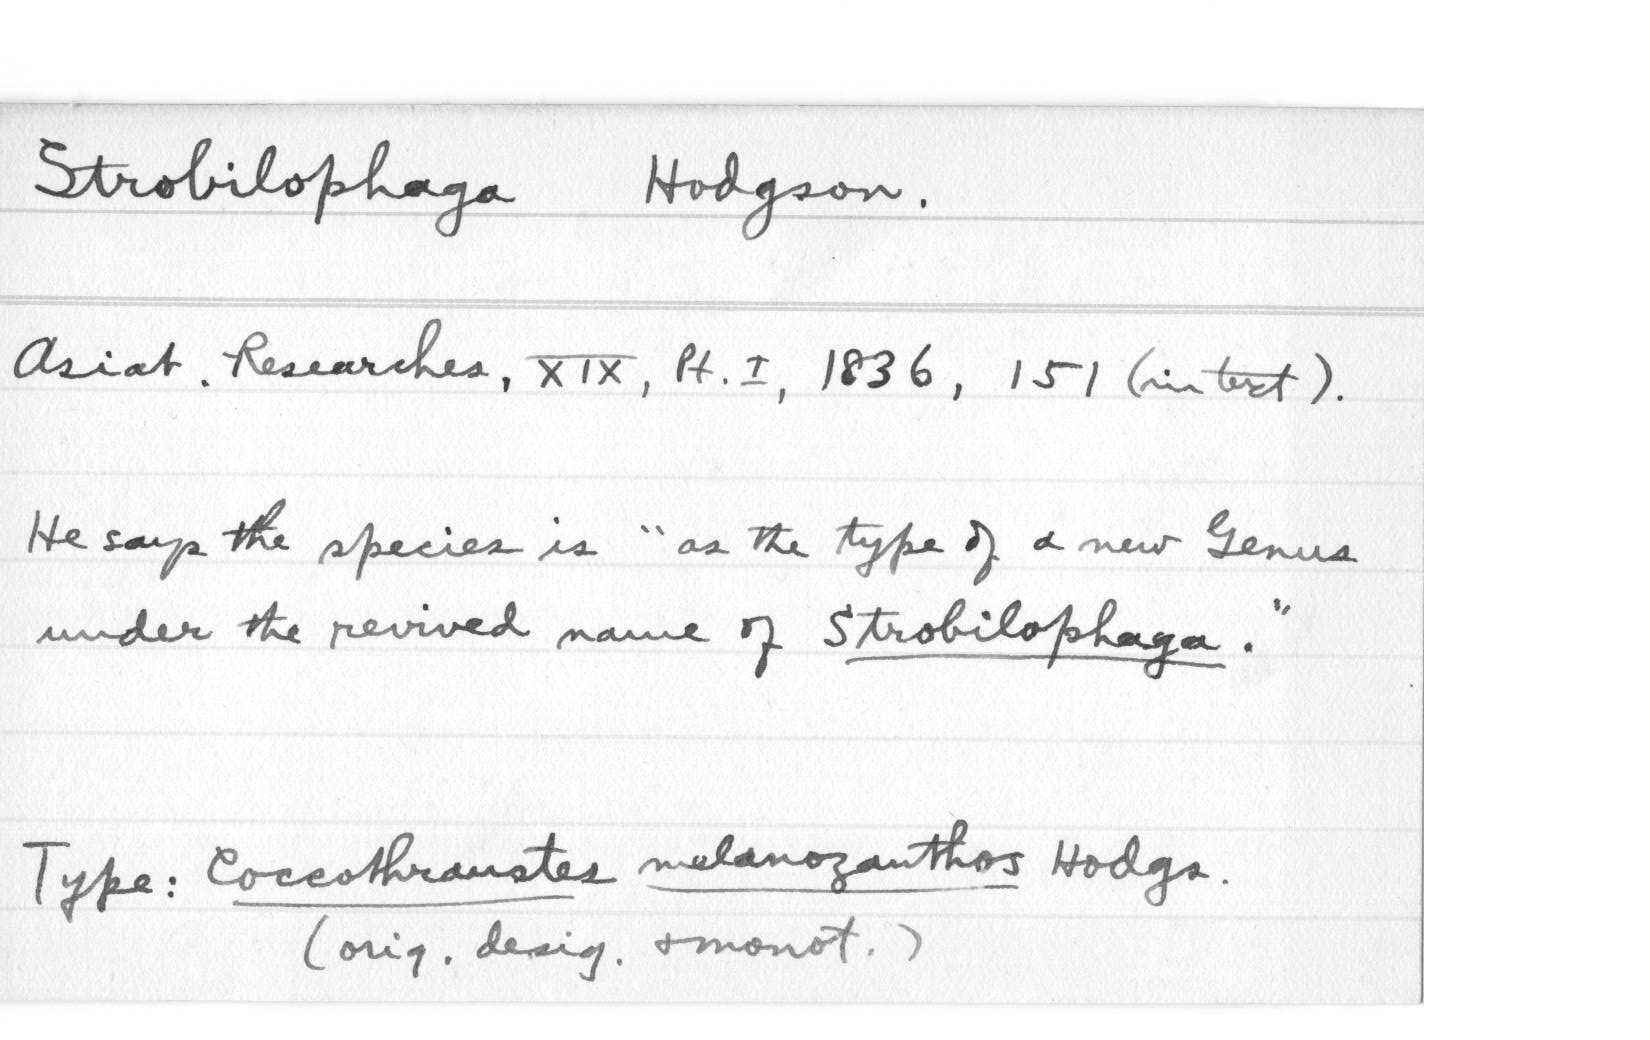 Strobilophaga Hodgson.
Asiat. Researches, XIX, Pt. I, 1836, 151 (in text).
He says the species is "as the type of a new Genus
under the revived name of Strobilophaga."
Type: Coccothraustes melanozanthos Hodgs.
(orig. desig. + monot.)